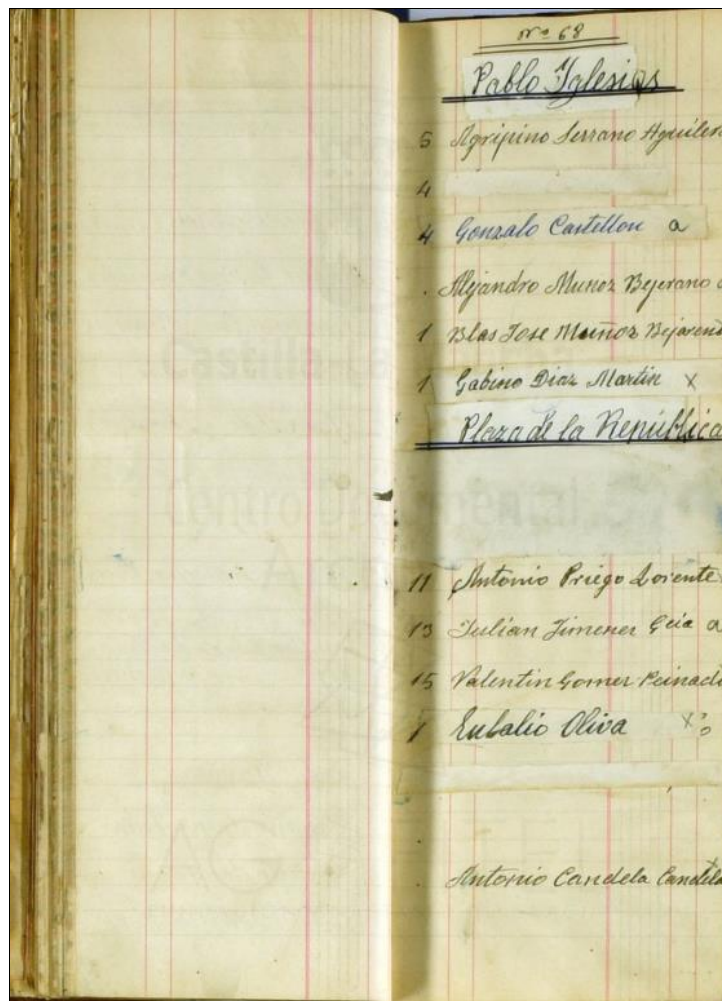 Nº 68
Pablo Iglesias
5 Agripino Serrano Aguilera
4
4 Gonzalo Castellon a
Alejandro Munoz Bejerano
1 Blas Jose Muñoz Bejarano
1 Gabino Diaz Martin x
Plaza de la República
11 Antonio Priego Lorente
13 Julian Jimenez a
15 Valentin Gomez Peinado
1 Eulalio Oliva x
Antonio Candela Candela